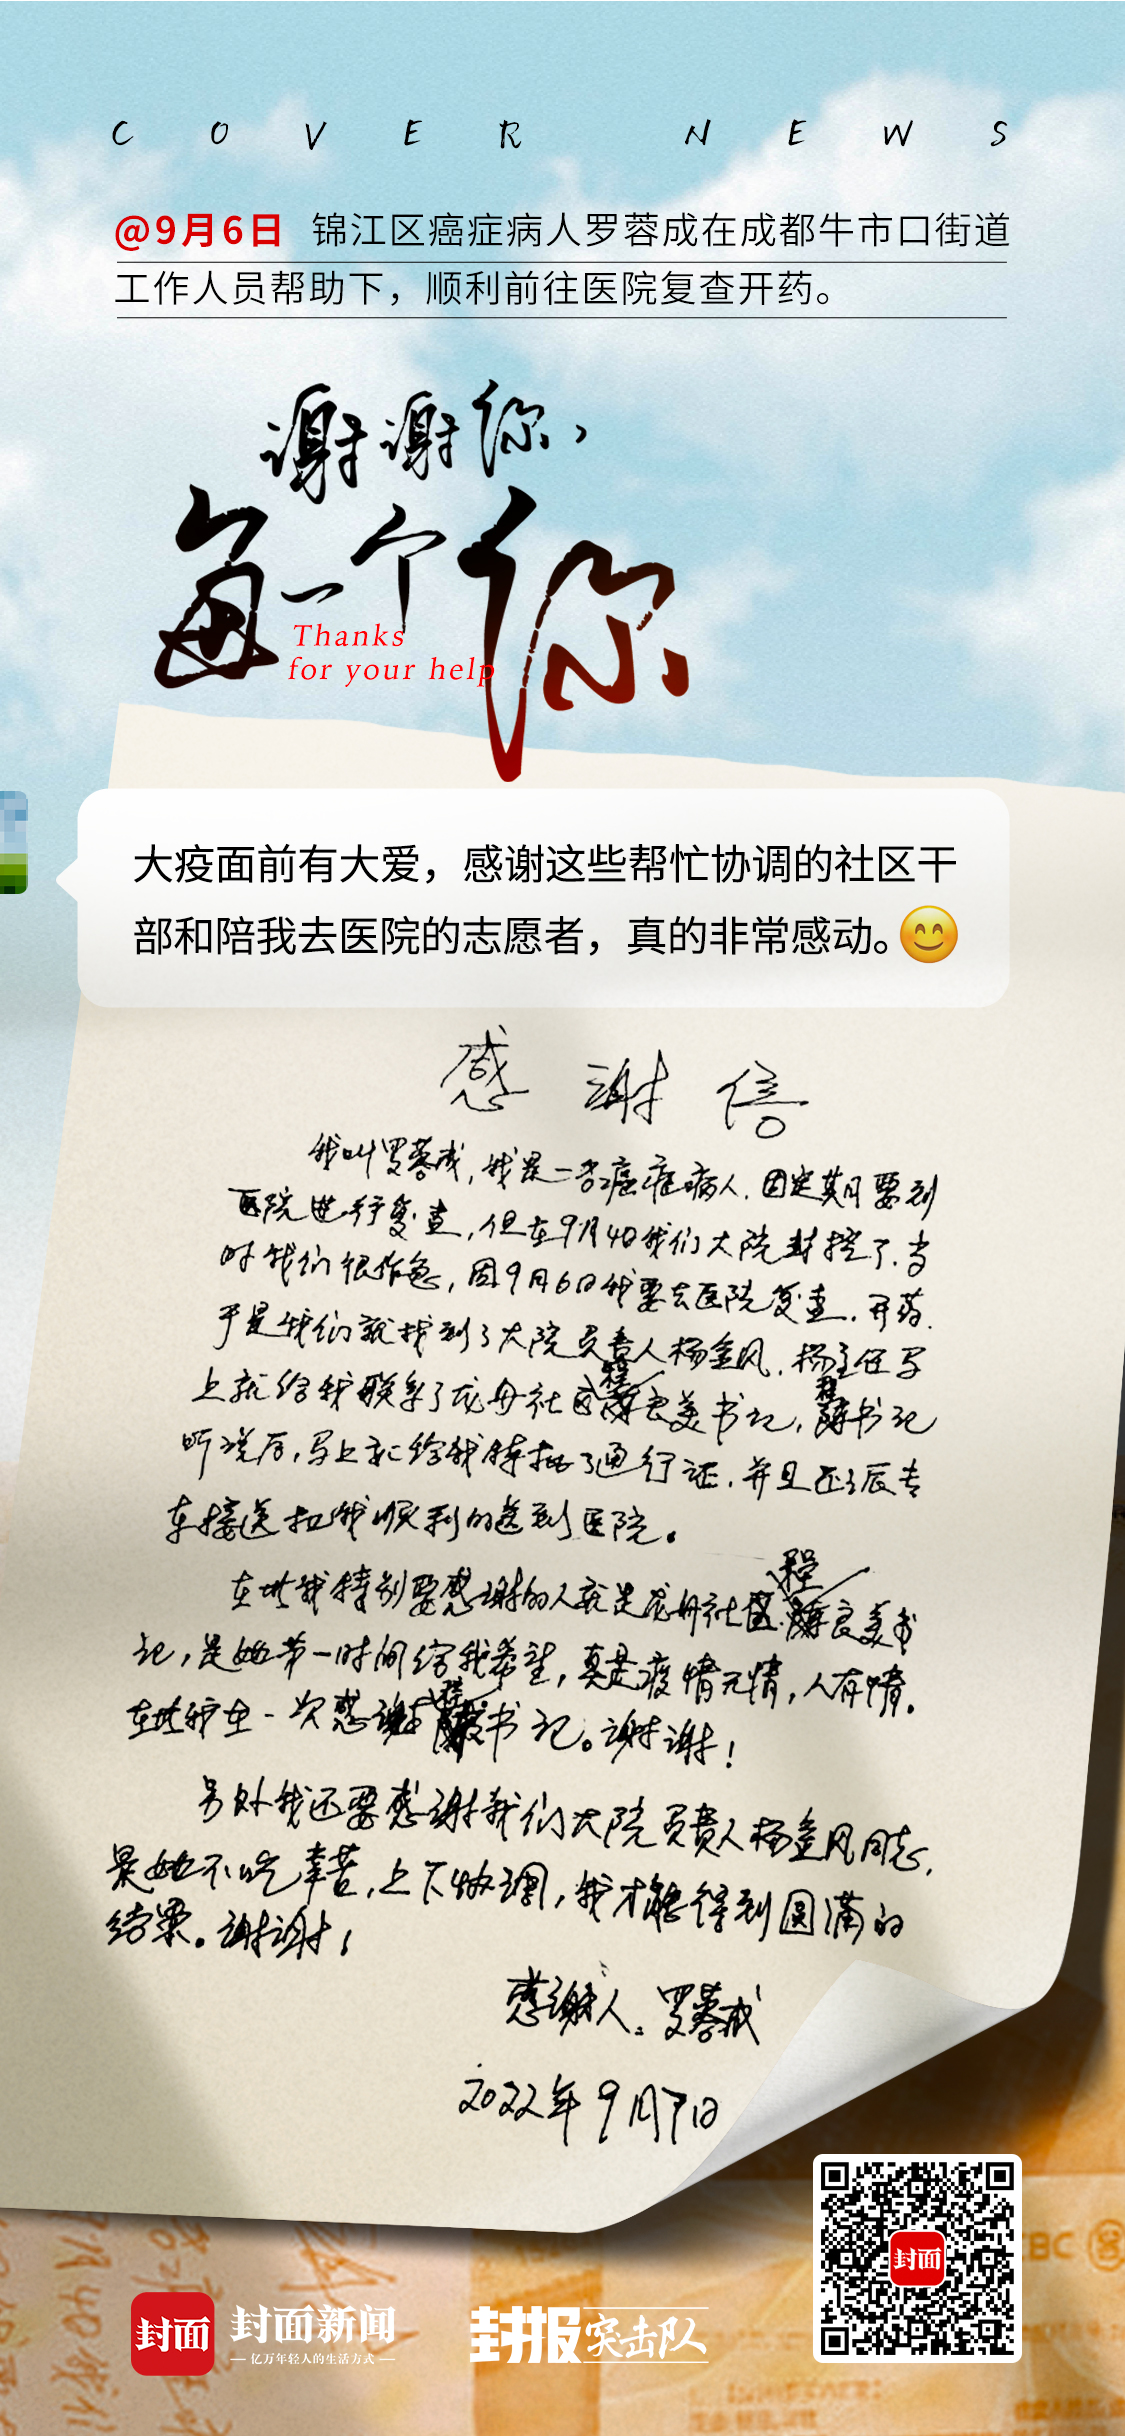 COVER NEWS
@9月6日 锦江区癌症病人罗蓉成在成都牛市口街道
工作人员帮助下，顺利前往医院复查开药。
谢谢你，
每一个你
Thanks
for your help
大疫面前有大爱，感谢这些帮忙协调的社区干
部和陪我去医院的志愿者，真的非常感动。😊
感谢信
我叫罗蓉成，我是一名癌症病人．因定期要到
医院进行复查，但在9月4日我们大院封控了．当
时我们很作急，因9月6日我要去医院复查．开药．
于是我们就找到了大院负责人杨金凤．杨主任马
上就给我联系了龙舟社区程良美书记，程书记
听说后，马上就给我特批了通行证．并且还派专
车接送把我顺利的送到医院。
在此我特别要感谢的人就是龙舟社区程良美书
记，是她第一时间给我希望，真是疫情无情，人有情．
在此我在一次感谢程书记。谢谢！
另外我还要感谢我们大院负责人杨金凤同志．
是她不吃辛苦，上下协调，我才能得到圆满的
结果。谢谢！
感谢人：罗蓉成
2022年9月7日
封面
封面
封面新闻
亿万年轻人的生活方式
封报突击队